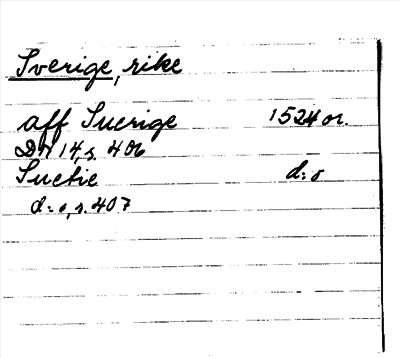 Sverige, rike
aff Suerige 1524 or.
DN 14, s. 406
Suetie d:o
d:o, s. 407